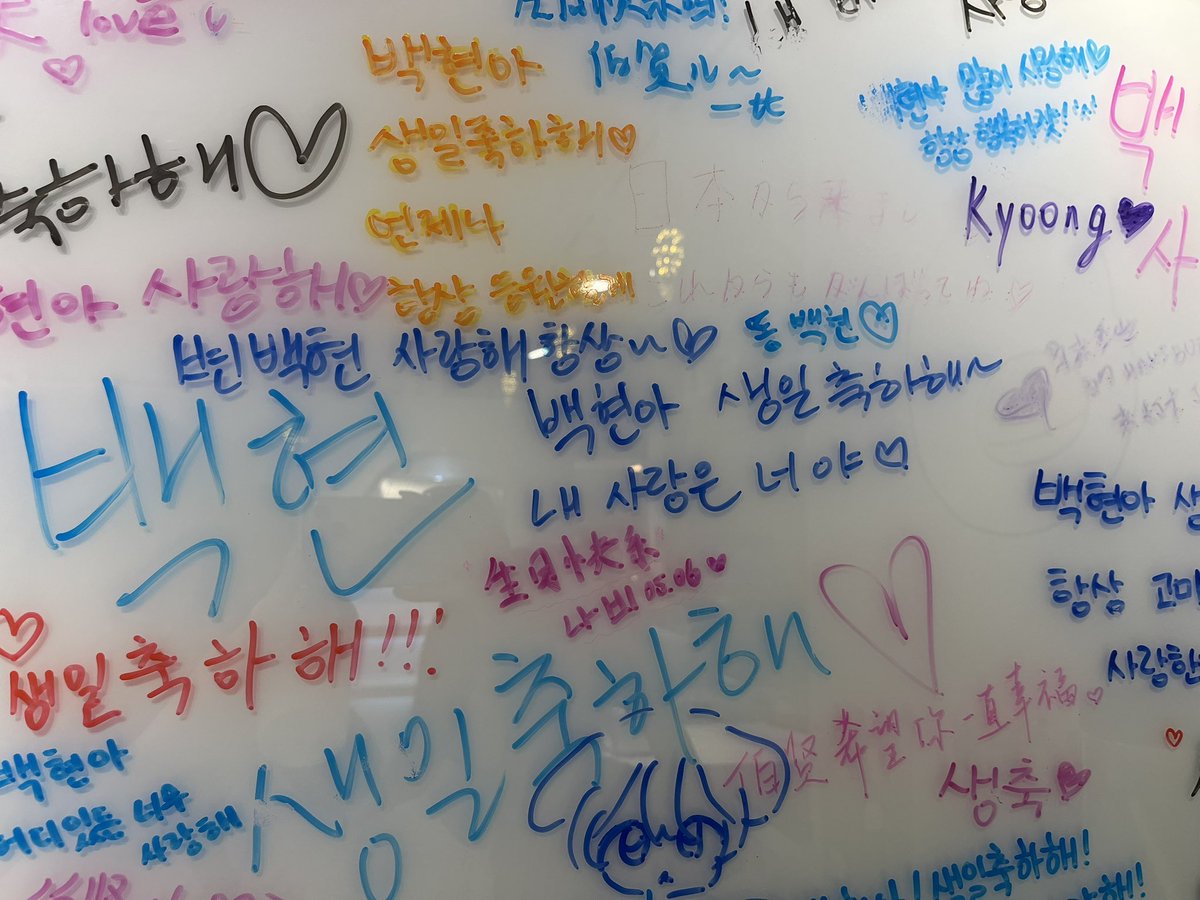 love
백현아
생일축하해♡
언제나
항상 응원할게
축하해♡
현아 사랑해♡
많이 사랑해♡
항상 행복하자!
백
사
Kyoong♥
日本から来まし
これからもがんばってね♡
변백현 사랑해 항상~♡
똥백현♡
백현아 생일 축하해~
내 사랑은 너야♡
백현
백현아 생
항상 고마
사랑한
생일축하해!!!
05.06♥
생일축하해
伯贤 希望你一直幸福♡
생축♥
백현아
어디있든 너무
사랑해
생일축하해!